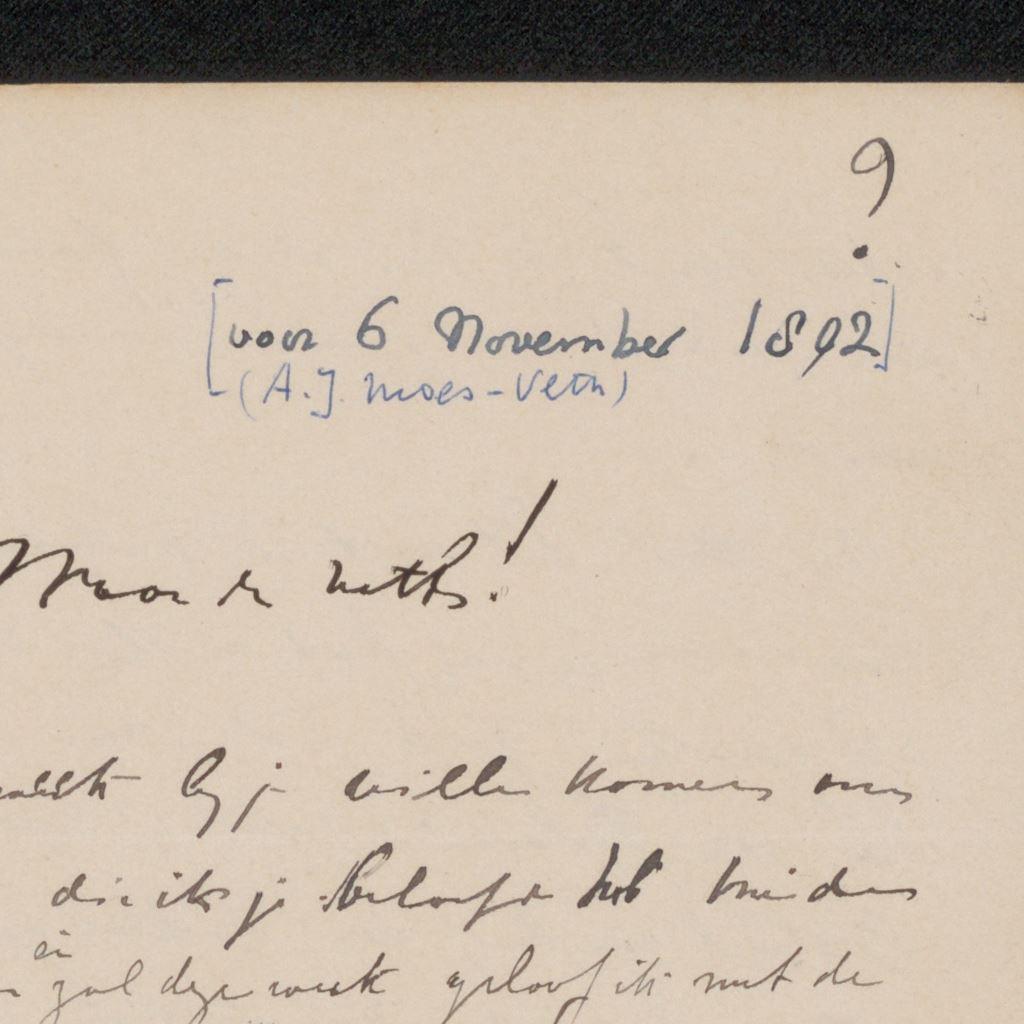 ?
[voor 6 November 1892]
(A.J. Moes-Veth)
Waarde Veth!
by je willen komen om
die ik je beloofd heb
zal deze week geloof ik met de